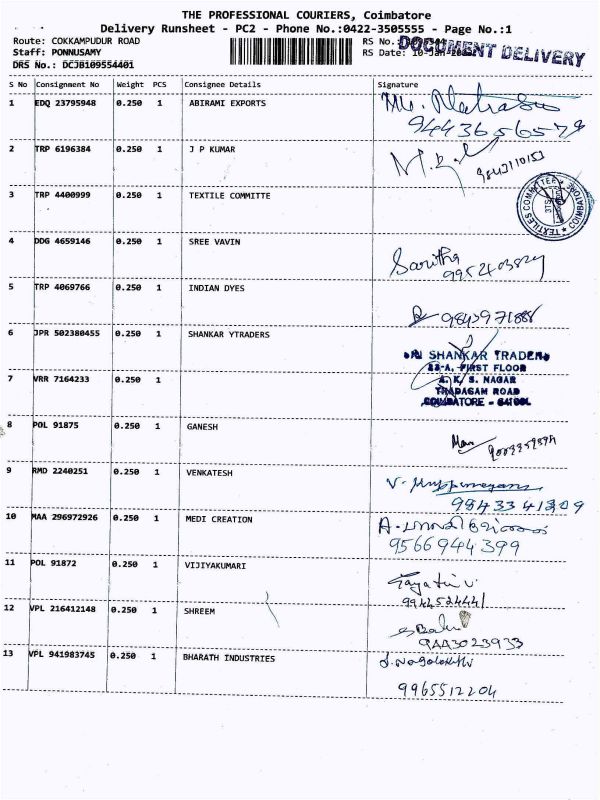 THE PROFESSIONAL COURIERS, Coimbatore
Delivery Runsheet - PC2 - Phone No.:0422-3505555 - Page No.:1
Route: COKKAMPUDUR ROAD
RS No.:
DOCUMENT DELIVERY
Staff: PONNUSAMY
RS Date: 10-Jan-
DRS No.: DCJB109554401
S No Consignment No Weight PCS Consignee Details Signature
1 EDQ 23795948 0.250 1 ABIRAMI EXPORTS
9443656579
2 TRP 6196384 0.250 1 J P KUMAR
9843110153
3 TRP 4400999 0.250 1 TEXTILE COMMITTE
TEXTILES COMMITTEE COIMBATORE
4 DDG 4659146 0.250 1 SREE VAVIN
Saritha
9952403824
5 TRP 4069766 0.250 1 INDIAN DYES
6 JPR 502380455 0.250 1 SHANKAR YTRADERS
SRI SHANKAR TRADERS
23-A, FIRST FLOOR
A. K. S. NAGAR
THADAGAM ROAD
COIMBATORE - 641001.
7 VRR 7164233 0.250 1
8 POL 91875 0.250 1 GANESH
9 RMD 2240251 0.250 1 VENKATESH
9843341309
10 MAA 296972926 0.250 1 MEDI CREATION
9566944399
11 POL 91872 0.250 1 VIJIYAKUMARI
Gayatri V
9944524441
12 VPL 216412148 0.250 1 SHREEM
9443023933
13 VPL 941983745 0.250 1 BHARATH INDUSTRIES
9965512204